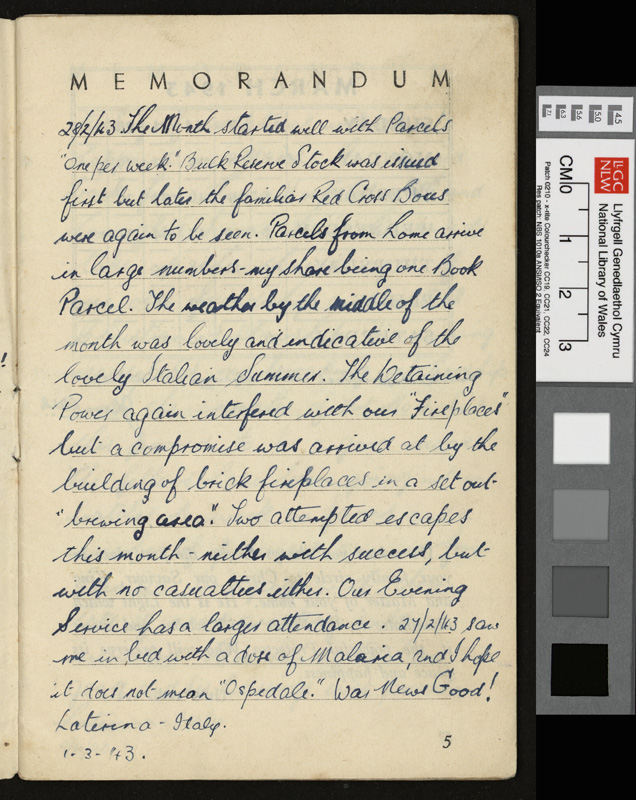 MEMORANDUM
28/2/43 The Month started well with Parcels
"One per week." Bulk Reserve Stock was issued
first but later the familiar Red Cross Boxes
were again to be seen. Parcels from home arrive
in large numbers - my share being one Book
Parcel. The weather by the middle of the
month was lovely and indicative of the
lovely Italian Summer. The Detaining
Power again interfered with our "Fireplaces"
but a compromise was arrived at by the
building of brick fireplaces in a set out
"brewing area". Two attempted escapes
this month - neither with success, but
with no casualties either. Our Evening
Service has a larger attendance. 27/2/43 saw
me in bed with a dose of Malaria, and I hope
it does not mean "Ospedale." War News Good!
Laterina - Italy.
1-3-'43.
5
!
LLGC
NLW
Llyfrgell Genedlaethol Cymru
National Library of Wales
CM 0 1 2 3
Patch 0210 - x-rite Colourchecker CC19, CC21, CC22, CC24
Res patch: NBS 1010a ANSI/ISO 2 Equivalent
7.1 6.3 5.6 5.0 4.5